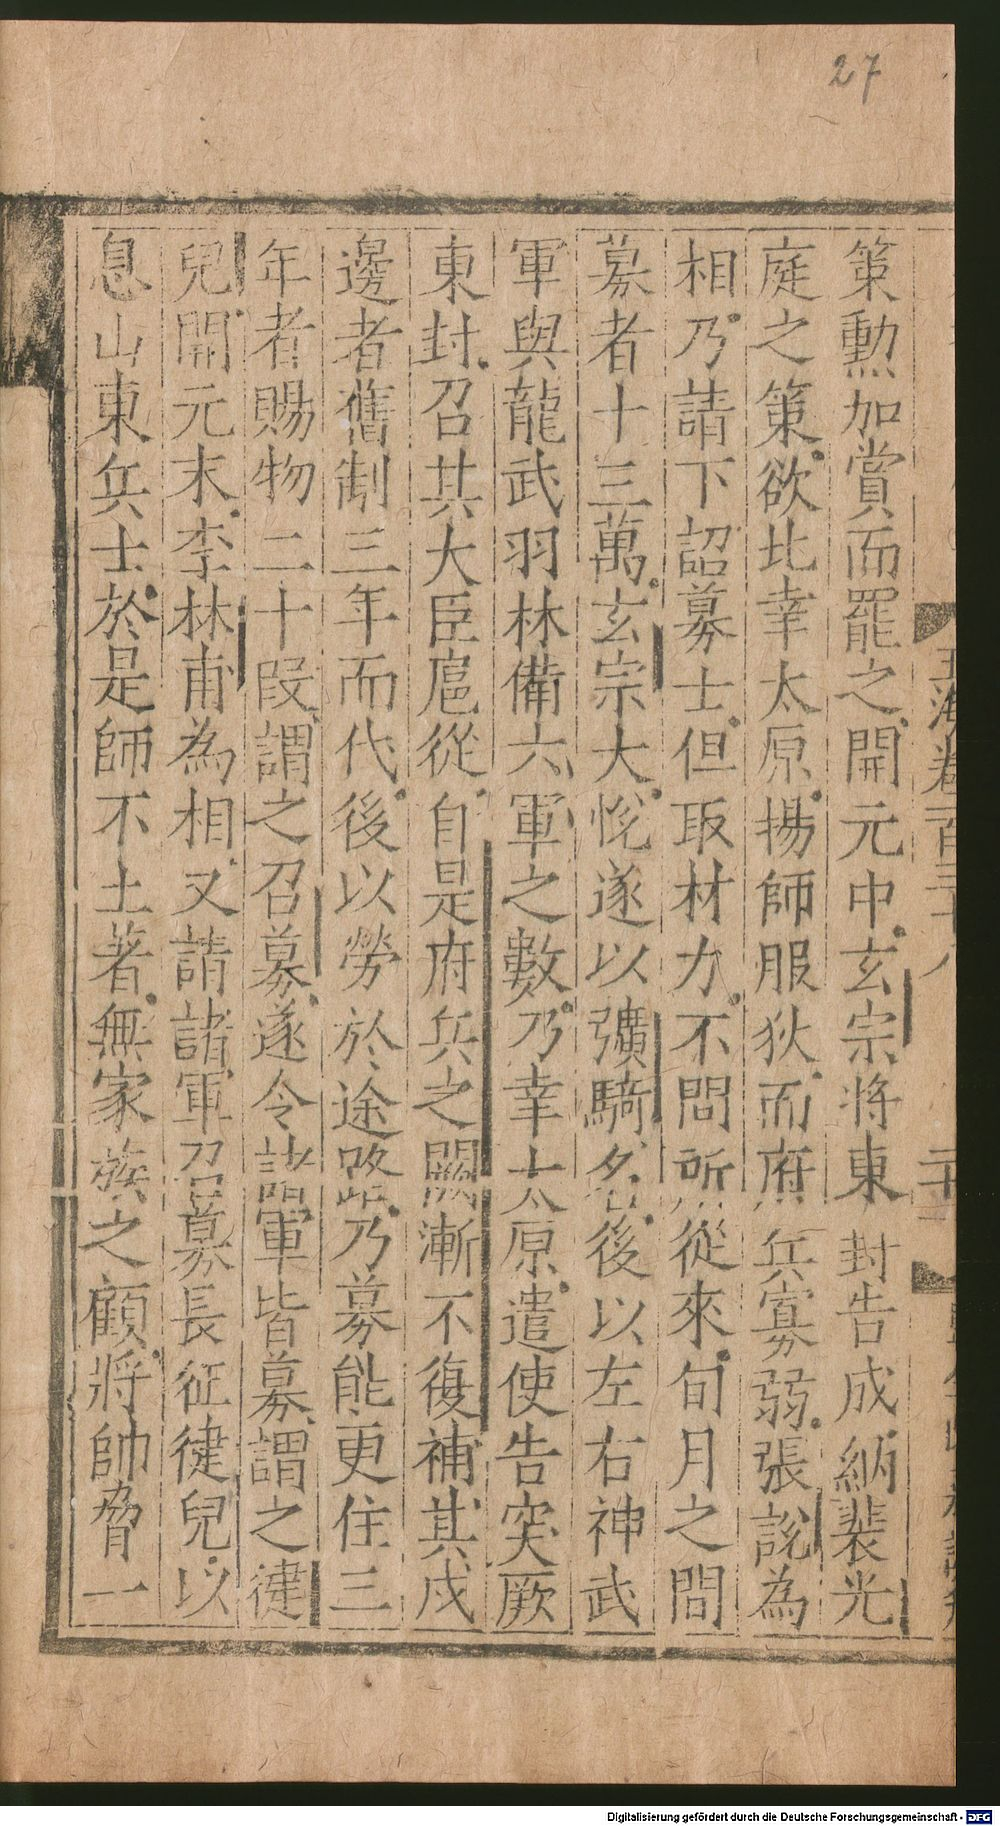 27
玉海卷百三十八
策勲加賞而罷之開元中玄宗將東封告成納裴光
庭之策欲比幸太原揚師服狄而府兵寡弱張說為
相乃請下詔募士但取材力不問所從來旬月之間
募者十三萬玄宗大悅遂以彍騎名後以左右神武
軍與龍武羽林備六軍之數乃幸太原遣使告突厥
東封召其大臣扈從自是府兵之闕漸不復補其戍
邊者舊制三年而代後以勞於途路乃募能更住三
年者賜物二十段謂之召募遂令諸軍皆募謂之徤
兒開元末李林甫為相又請諸軍召募長征徤兒以
息山東兵士於是師不土著無家族之顧將帥脅一
Digitalisierung gefördert durch die Deutsche Forschungsgemeinschaft - DFG